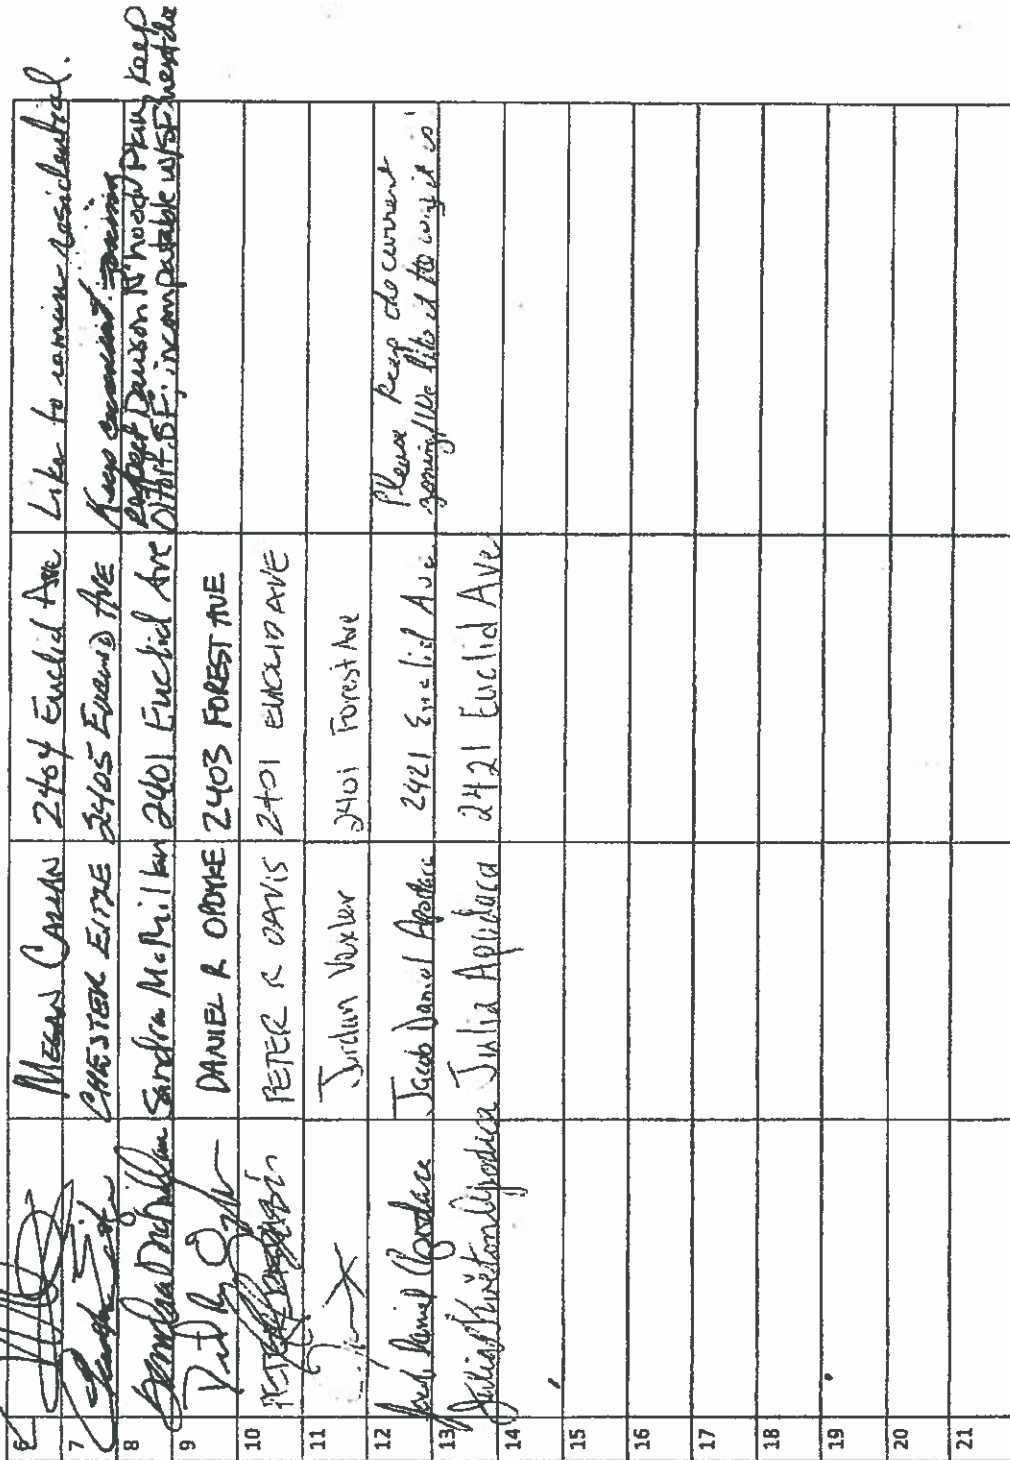 6 Megan 2404 Euclid Ave Like to remain residential.
7 CHESTER EITZE 2405 Euclid AVE Keep current zoning
8 Sandra McMillan Sandra McMillan 2401 Euclid Ave Respect Dawson N'hood Plan, keep
Ditto, SF; incompatable w/SF
9 DANIEL R OPDYKE 2403 FOREST AVE
10 PETER R DAVIS 2401 EUCLID AVE
11 Jordan 2401 Forest Ave
12 Jacob Daniel Apodaca Jacob Daniel Apodaca 2421 Euclid Ave Please keep the current
zoning! We like it the way it is
13 Julia Apodaca 2421 Euclid Ave
14
15
16
17
18
19
20
21